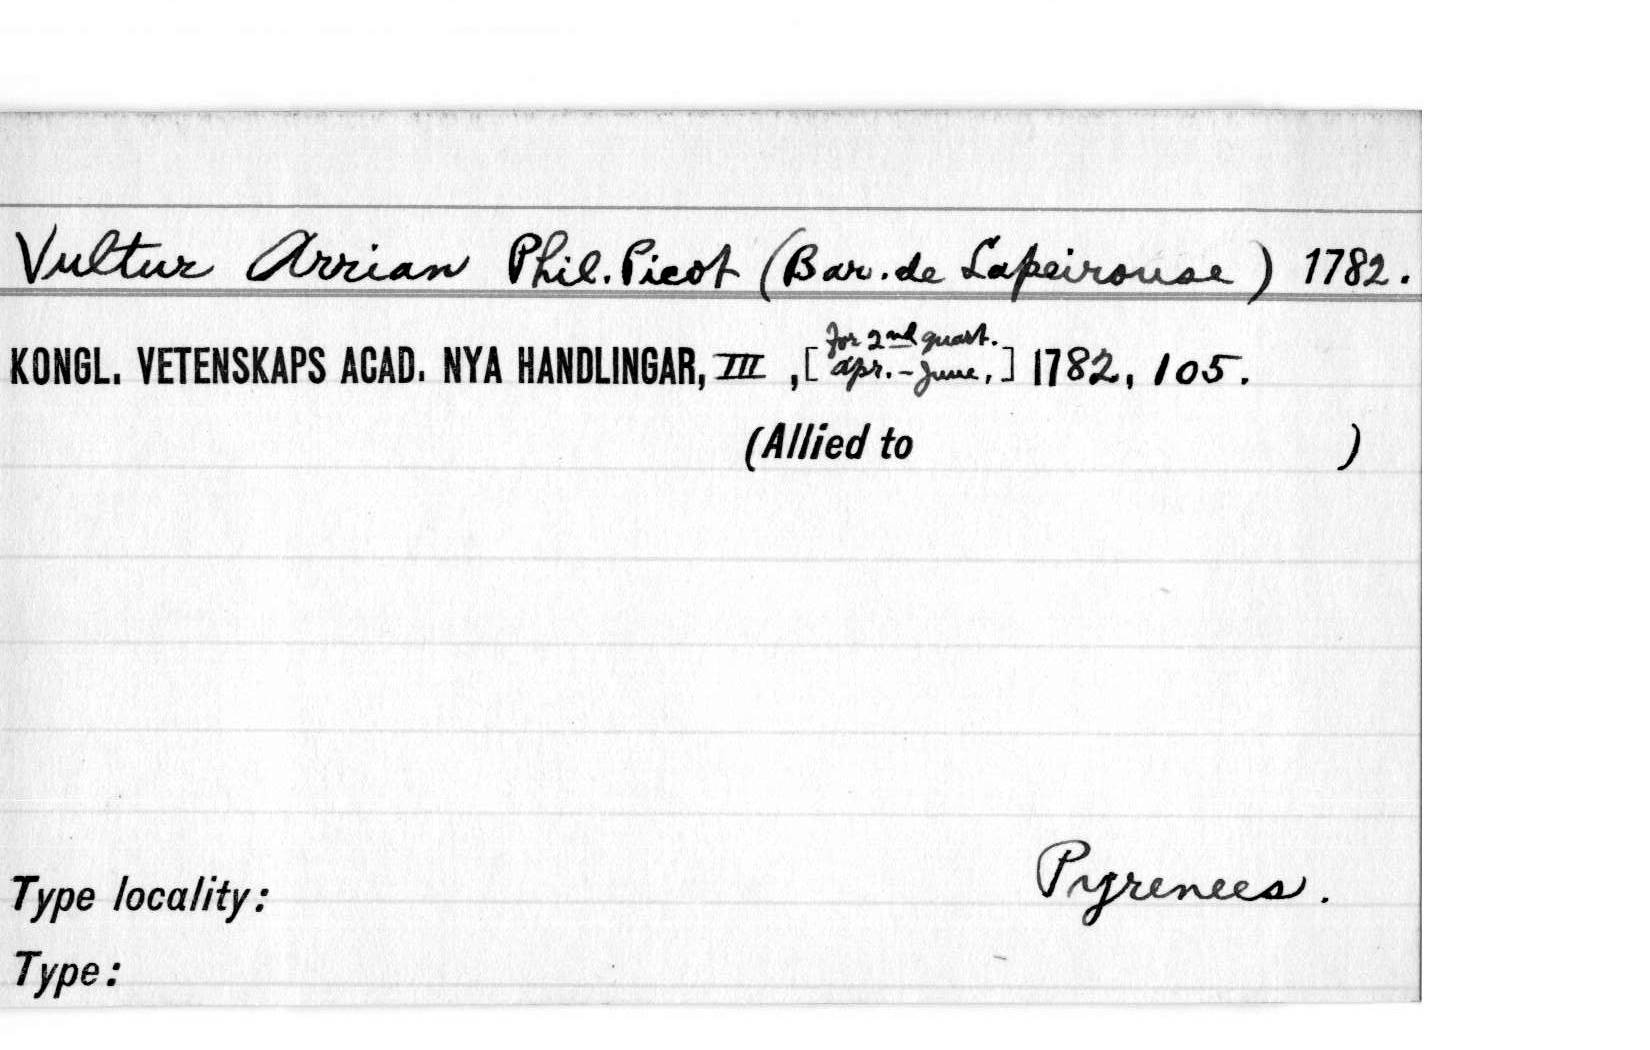 Vultur Arrian Phil. Picot (Bar. de Lapeirouse) 1782.
for 2nd quart.
KONGL. VETENSKAPS ACAD. NYA HANDLINGAR, III, [Apr. - June,] 1782, 105.
(Allied to )
Pyrenees.
Type locality:
Type: